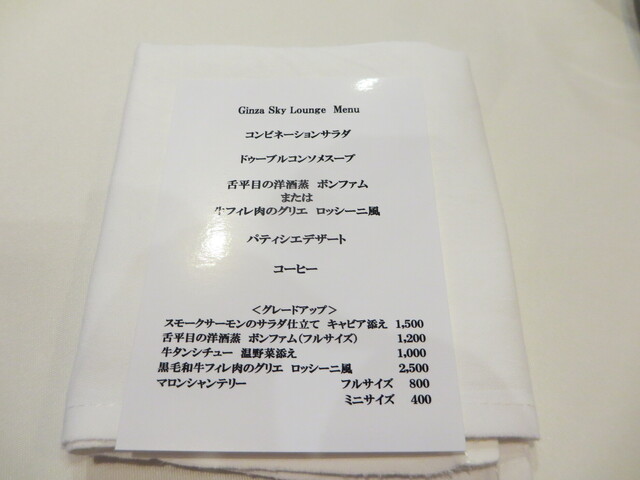 Ginza Sky Lounge Menu
コンビネーションサラダ
ドゥーブルコンソメスープ
舌平目の洋酒蒸 ボンファム
または
牛フィレ肉のグリエ ロッシーニ風
パティシエデザート
コーヒー
＜グレードアップ＞
スモークサーモンのサラダ仕立て キャビア添え 1,500
舌平目の洋酒蒸 ボンファム(フルサイズ) 1,200
牛タンシチュー 温野菜添え 1,000
黒毛和牛フィレ肉のグリエ ロッシーニ風 2,500
マロンシャンテリー フルサイズ 800
ミニサイズ 400